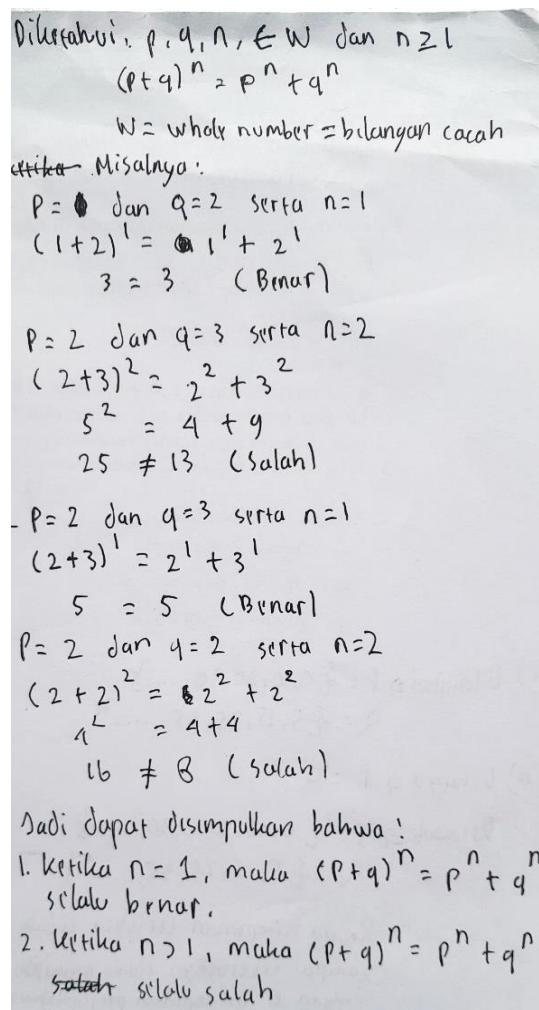 Diketahui : p, q, n, ∈ W dan n ≥ 1
(p+q)^n = p^n + q^n
W = whole number = bilangan cacah
Misalnya :
P = dan q = 2 serta n = 1
(1+2)^1 = 1^1 + 2^1
3 = 3 (Benar)
P = 2 dan q = 3 serta n = 2
(2+3)^2 = 2^2 + 3^2
5^2 = 4 + 9
25 ≠ 13 (Salah)
- P = 2 dan q = 3 serta n = 1
(2+3)^1 = 2^1 + 3^1
5 = 5 (Benar)
P = 2 dan q = 2 serta n = 2
(2+2)^2 = 2^2 + 2^2
4^2 = 4+4
16 ≠ 8 (salah)
Jadi dapat disimpulkan bahwa :
1. Ketika n = 1, maka (p+q)^n = p^n + q^n
selalu benar.
2. Ketika n > 1, maka (p+q)^n = p^n + q^n
salah selalu salah